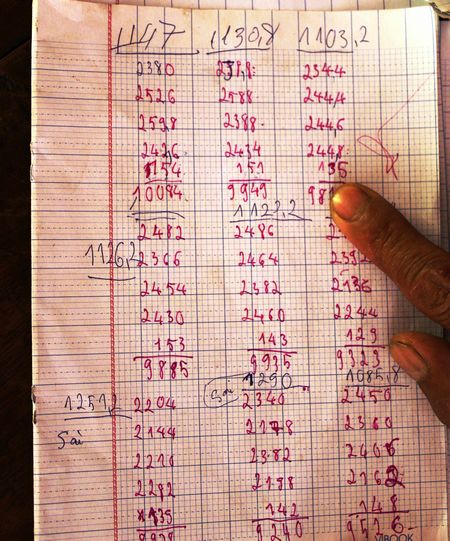 1147 1130,8 1103,2
2380 2388 2344
2526 2588 2444
2598 2388 2446
2426 2434 2448
154 151 135
10084 9949 981
1126,2 1123,2
2482 2486
2366 2464 2392
2454 2382 2136
2430 2460 2244
153 143 129
9885 9935 9323
1251,2 Sai 1290 1085,8
2204 2340 2450
Sai 2144 2178 2360
2210 2382 2406
2282 2198 2162
142 148
9240 9526